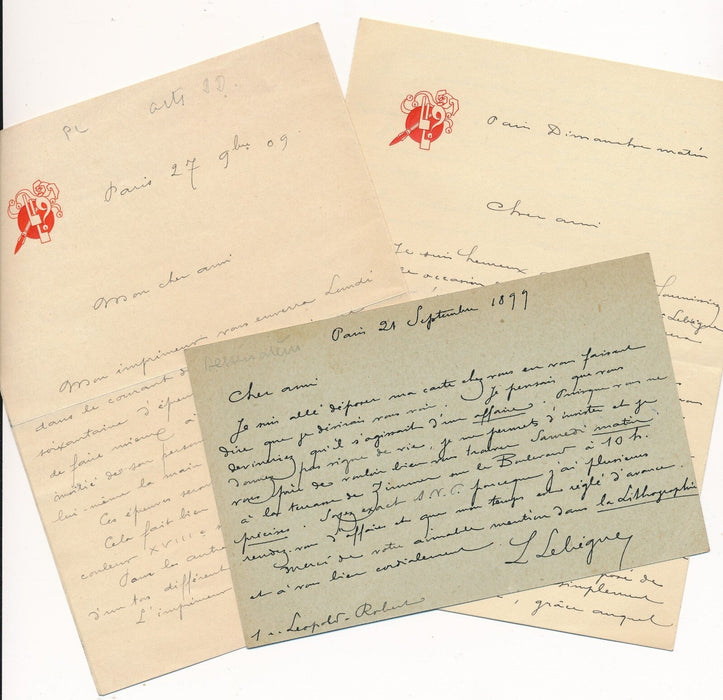 PL arts DD.
Paris 27 9bre 09
Mon cher ami
Mon imprimeur vous enverra Lundi
dans le courant d
soixantaine d'épreu
de faire mieux à
moitié de son person
lui-même la main
Ces épreuves se
Cela fait bien
couleur XVIIIe
Pour les autre
d'un ton différent
L'imprimeur
Paris Dimanche matin
Cher ami
Je suis heureux
occasion
Lebègue
Paris 21 Septembre 1899
Cher ami
Je suis allé déposer ma carte chez vous en vous faisant
dire que je désirais vous voir. Je pensais que vous
devineriez qu'il s'agissait d'une affaire. Puisque vous ne
donnez pas signe de vie, je me permets d'insister et je
vous prie de vouloir bien vous trouver Samedi matin
à la terrasse de Zimmer sur le Boulevard à 10 h.
précises. Soyez exact S.V.P. parceque j'ai plusieurs
rendez-vous d'affaire et que mon temps est réglé d'avance.
Merci de votre aimable mention dans la Lithographie
et à vous bien cordialement.
L Lebègue
1 r. Léopold-Robert
posé de
simplement
, grâce auquel